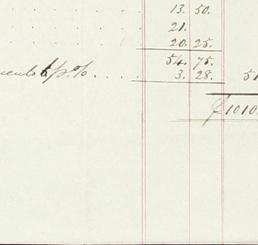 13. 50.
21.
20. 25.
54. 75.
p. % 3. 28. 51
£ 1010.